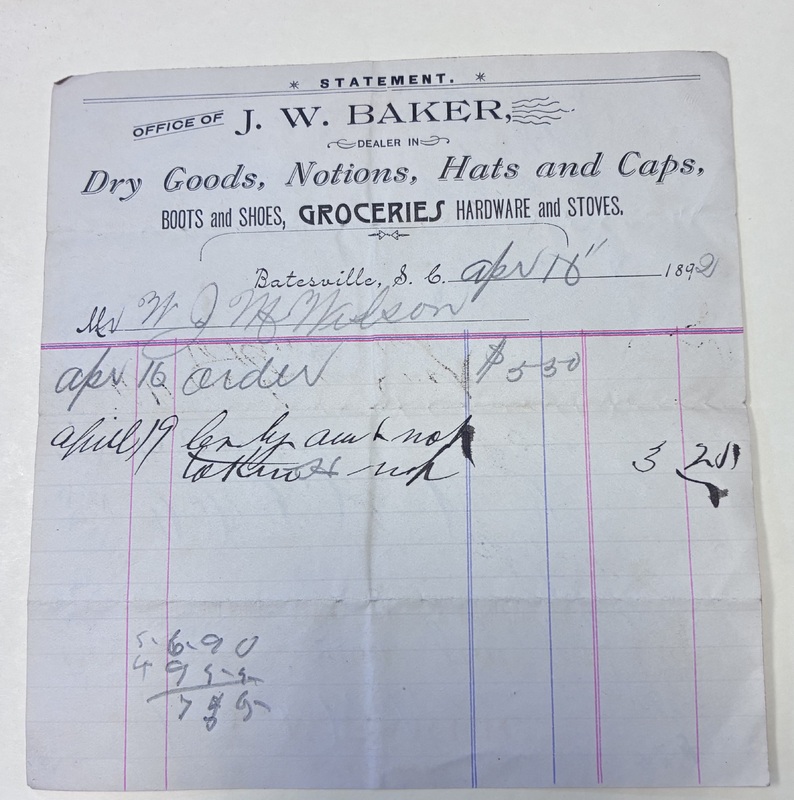 STATEMENT.
OFFICE OF J. W. BAKER,
DEALER IN
Dry Goods, Notions, Hats and Caps,
BOOTS and SHOES, GROCERIES HARDWARE and STOVES.
Batesville, S. C. Apr 16" 1892
Mr W J M Wilson
apr 16 order $5 50
april 19 3
5 6 9 0
4 9 5 5
7 3 5